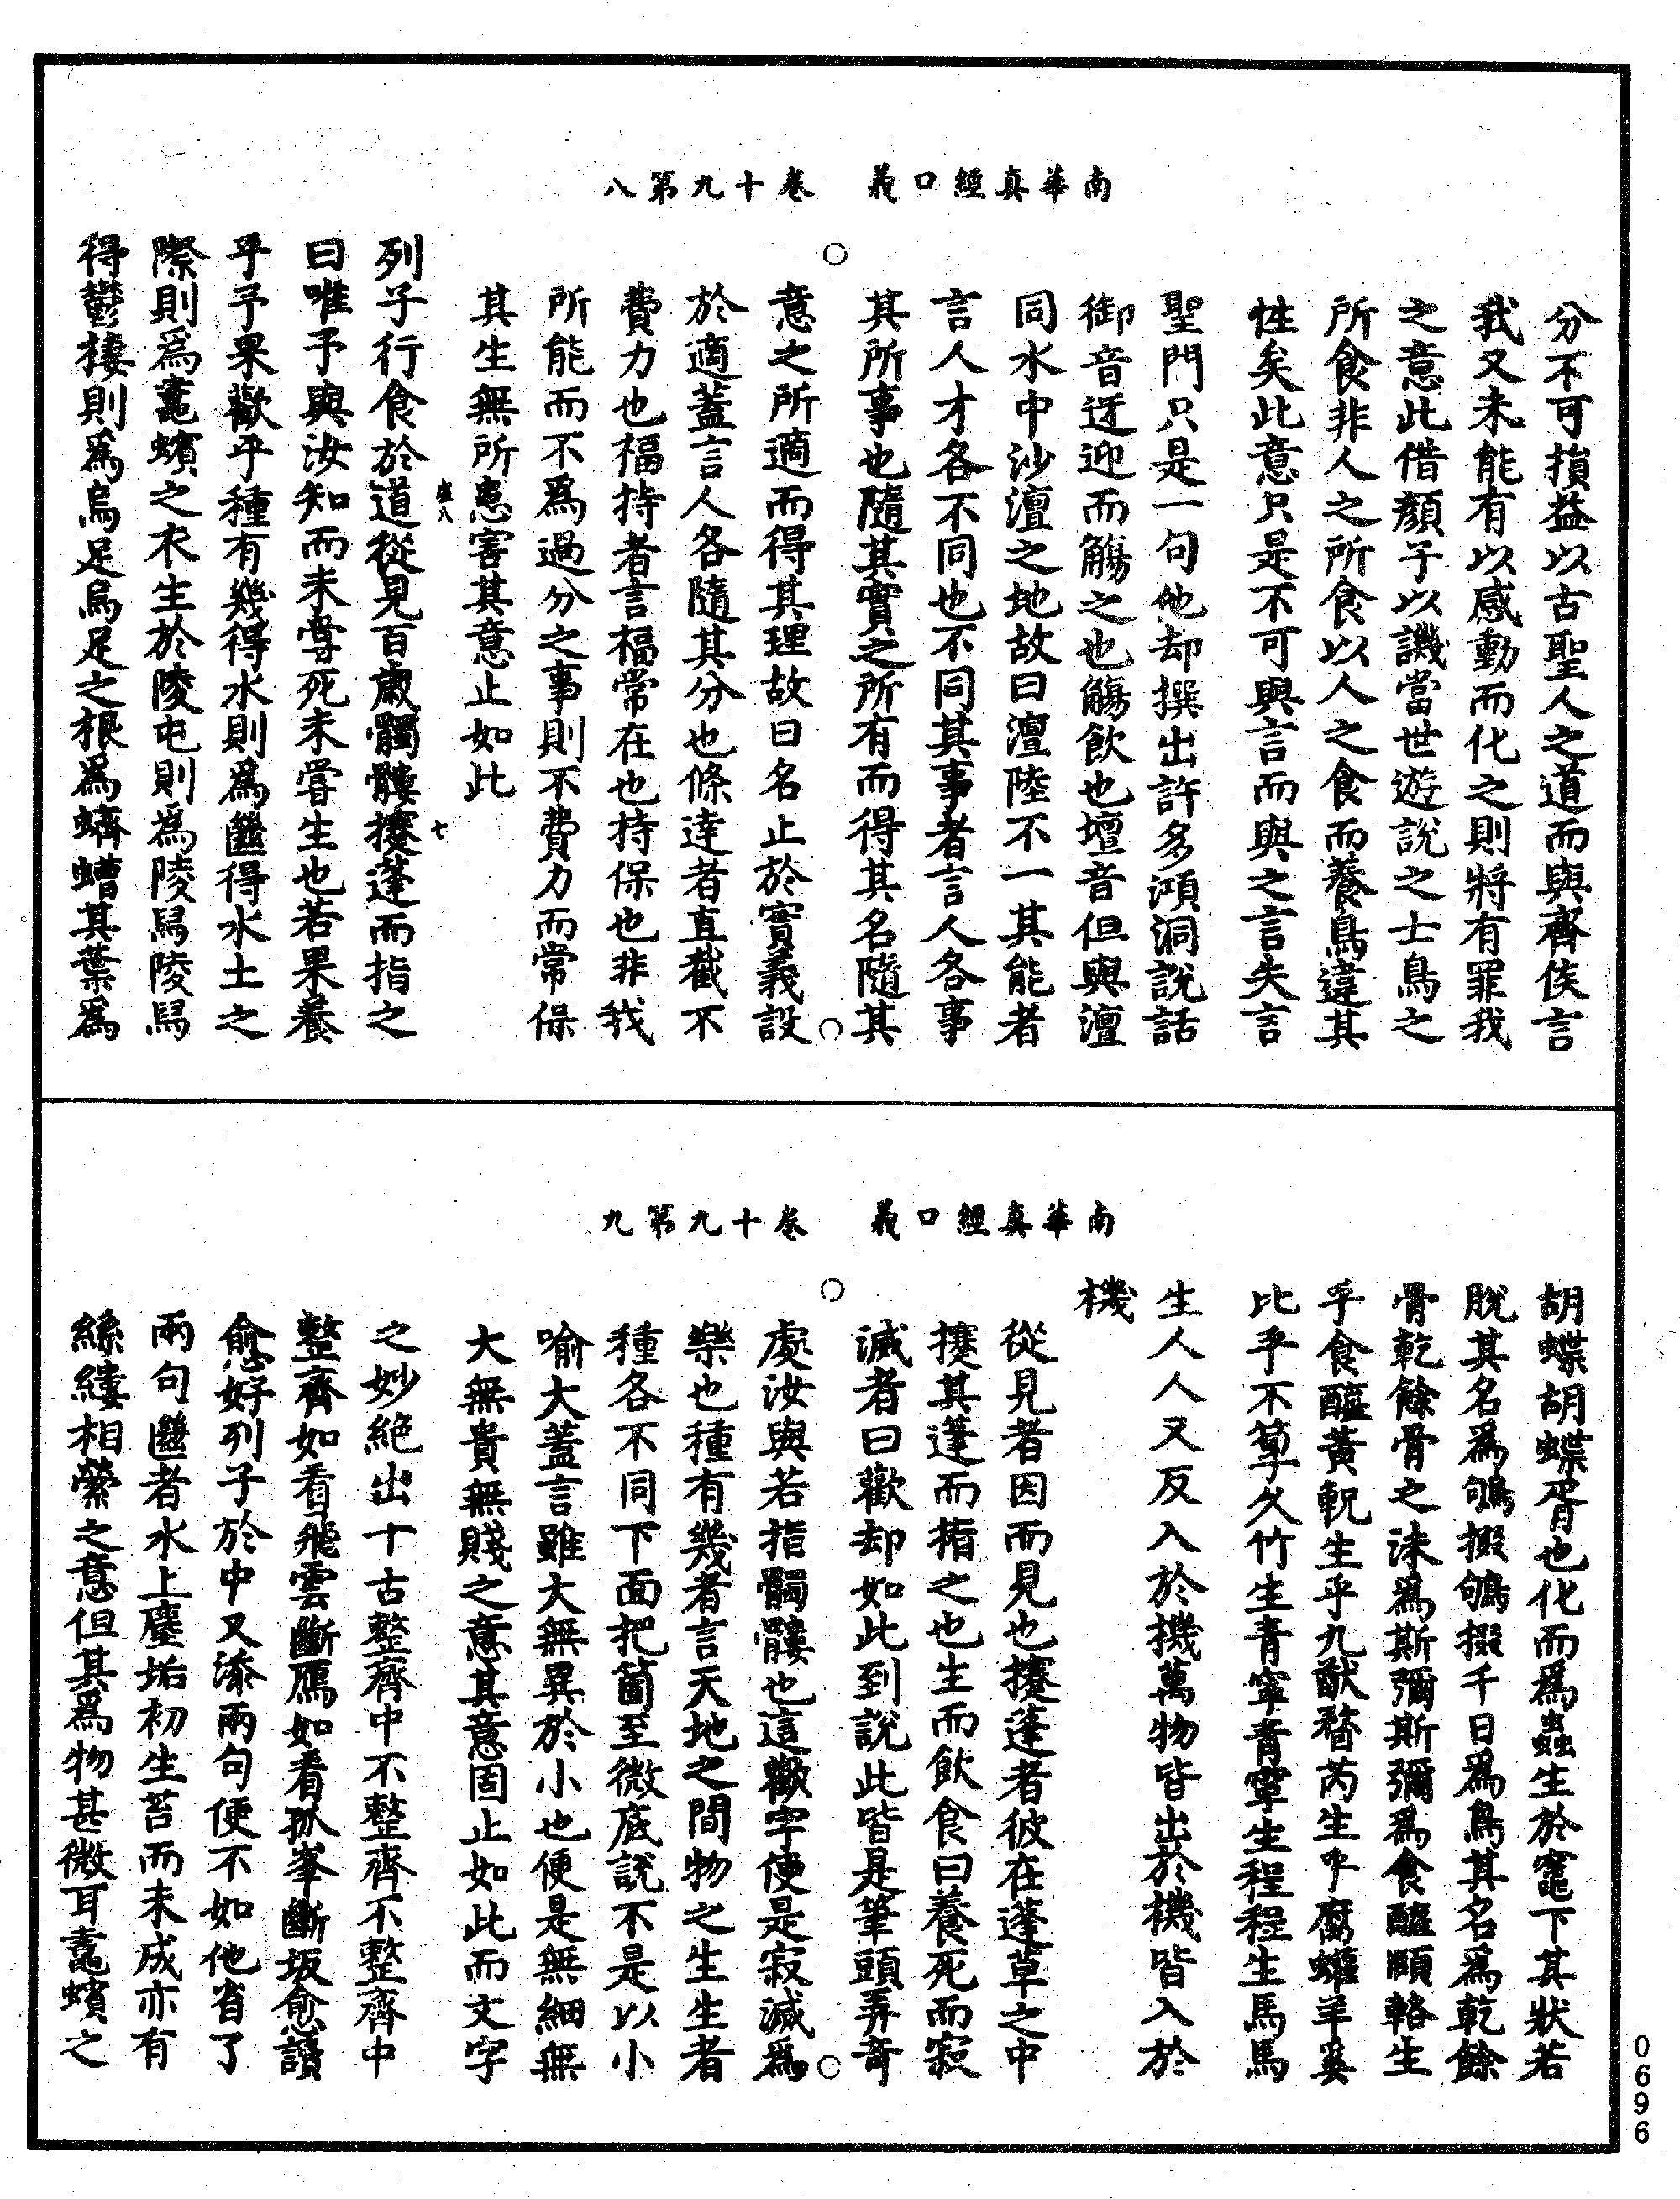 南華真經口義　卷十九第八
分不可損益以古聖人之道而與齊侯言
我又未能有以感動而化之則將有罪我
之意此借顏子以譏當世遊說之士鳥之
所食非人之所食以人之食而養鳥違其
性矣此意只是不可與言而與之言失言
聖門只是一句他却撰出許多澒洞說話
御音迓迎而觴之也觴飲也壇音但與澶
同水中沙澶之地故曰澶陸不一其能者
言人才各不同也不同其事者言人各事
其所事也隨其實之所有而得其名隨其
意之所適而得其理故曰名止於實義設
於適蓋言人各隨其分也條達者直截不
費力也福持者言福常在也持保也非我
所能而不為過分之事則不費力而常保
其生無所患害其意止如此
列子行食於道從見百歲髑髏攓蓬而指之
曰唯予與汝知而未嘗死未嘗生也若果養
乎予果歡乎種有幾得水則為㡭得水土之
際則為鼃蠙之衣生於陵屯則為陵舄陵舄
得鬱棲則為烏足烏足之根為蠐螬其葉為
南華真經口義　卷十九第九
胡蝶胡蝶胥也化而為蟲生於竈下其狀若
脫其名為鴝掇鴝掇千日為鳥其名為乾餘
骨乾餘骨之沬為斯彌斯彌為食醯頤輅生
乎食醯黃軦生乎九猷瞀芮生乎腐蠸羊奚
比乎不箰久竹生青寧青寧生程程生馬馬
生人人又反入於機萬物皆出於機皆入於
機
從見者因而見也攓蓬者彼在蓬草之中
攓其蓬而指之也生而飲食曰養死而寂
滅者曰歡却如此到說此皆是筆頭弄奇
處汝與若指髑髏也這歡字便是寂滅為
樂也種有幾者言天地之間物之生生者
種各不同下面把箇至微底說不是以小
喻大蓋言雖大無異於小也便是無細無
大無貴無賤之意其意固止如此而文字
之妙絕出千古整齊中不整齊不整齊中
整齊如看飛雲斷鴈如看孤峯斷坂愈讀
愈好列子於中又添兩句便不如他省了
兩句㡭者水上塵垢初生苔而未成亦有
絲縷相縈之意但其為物甚微耳鼃蠙之
0696